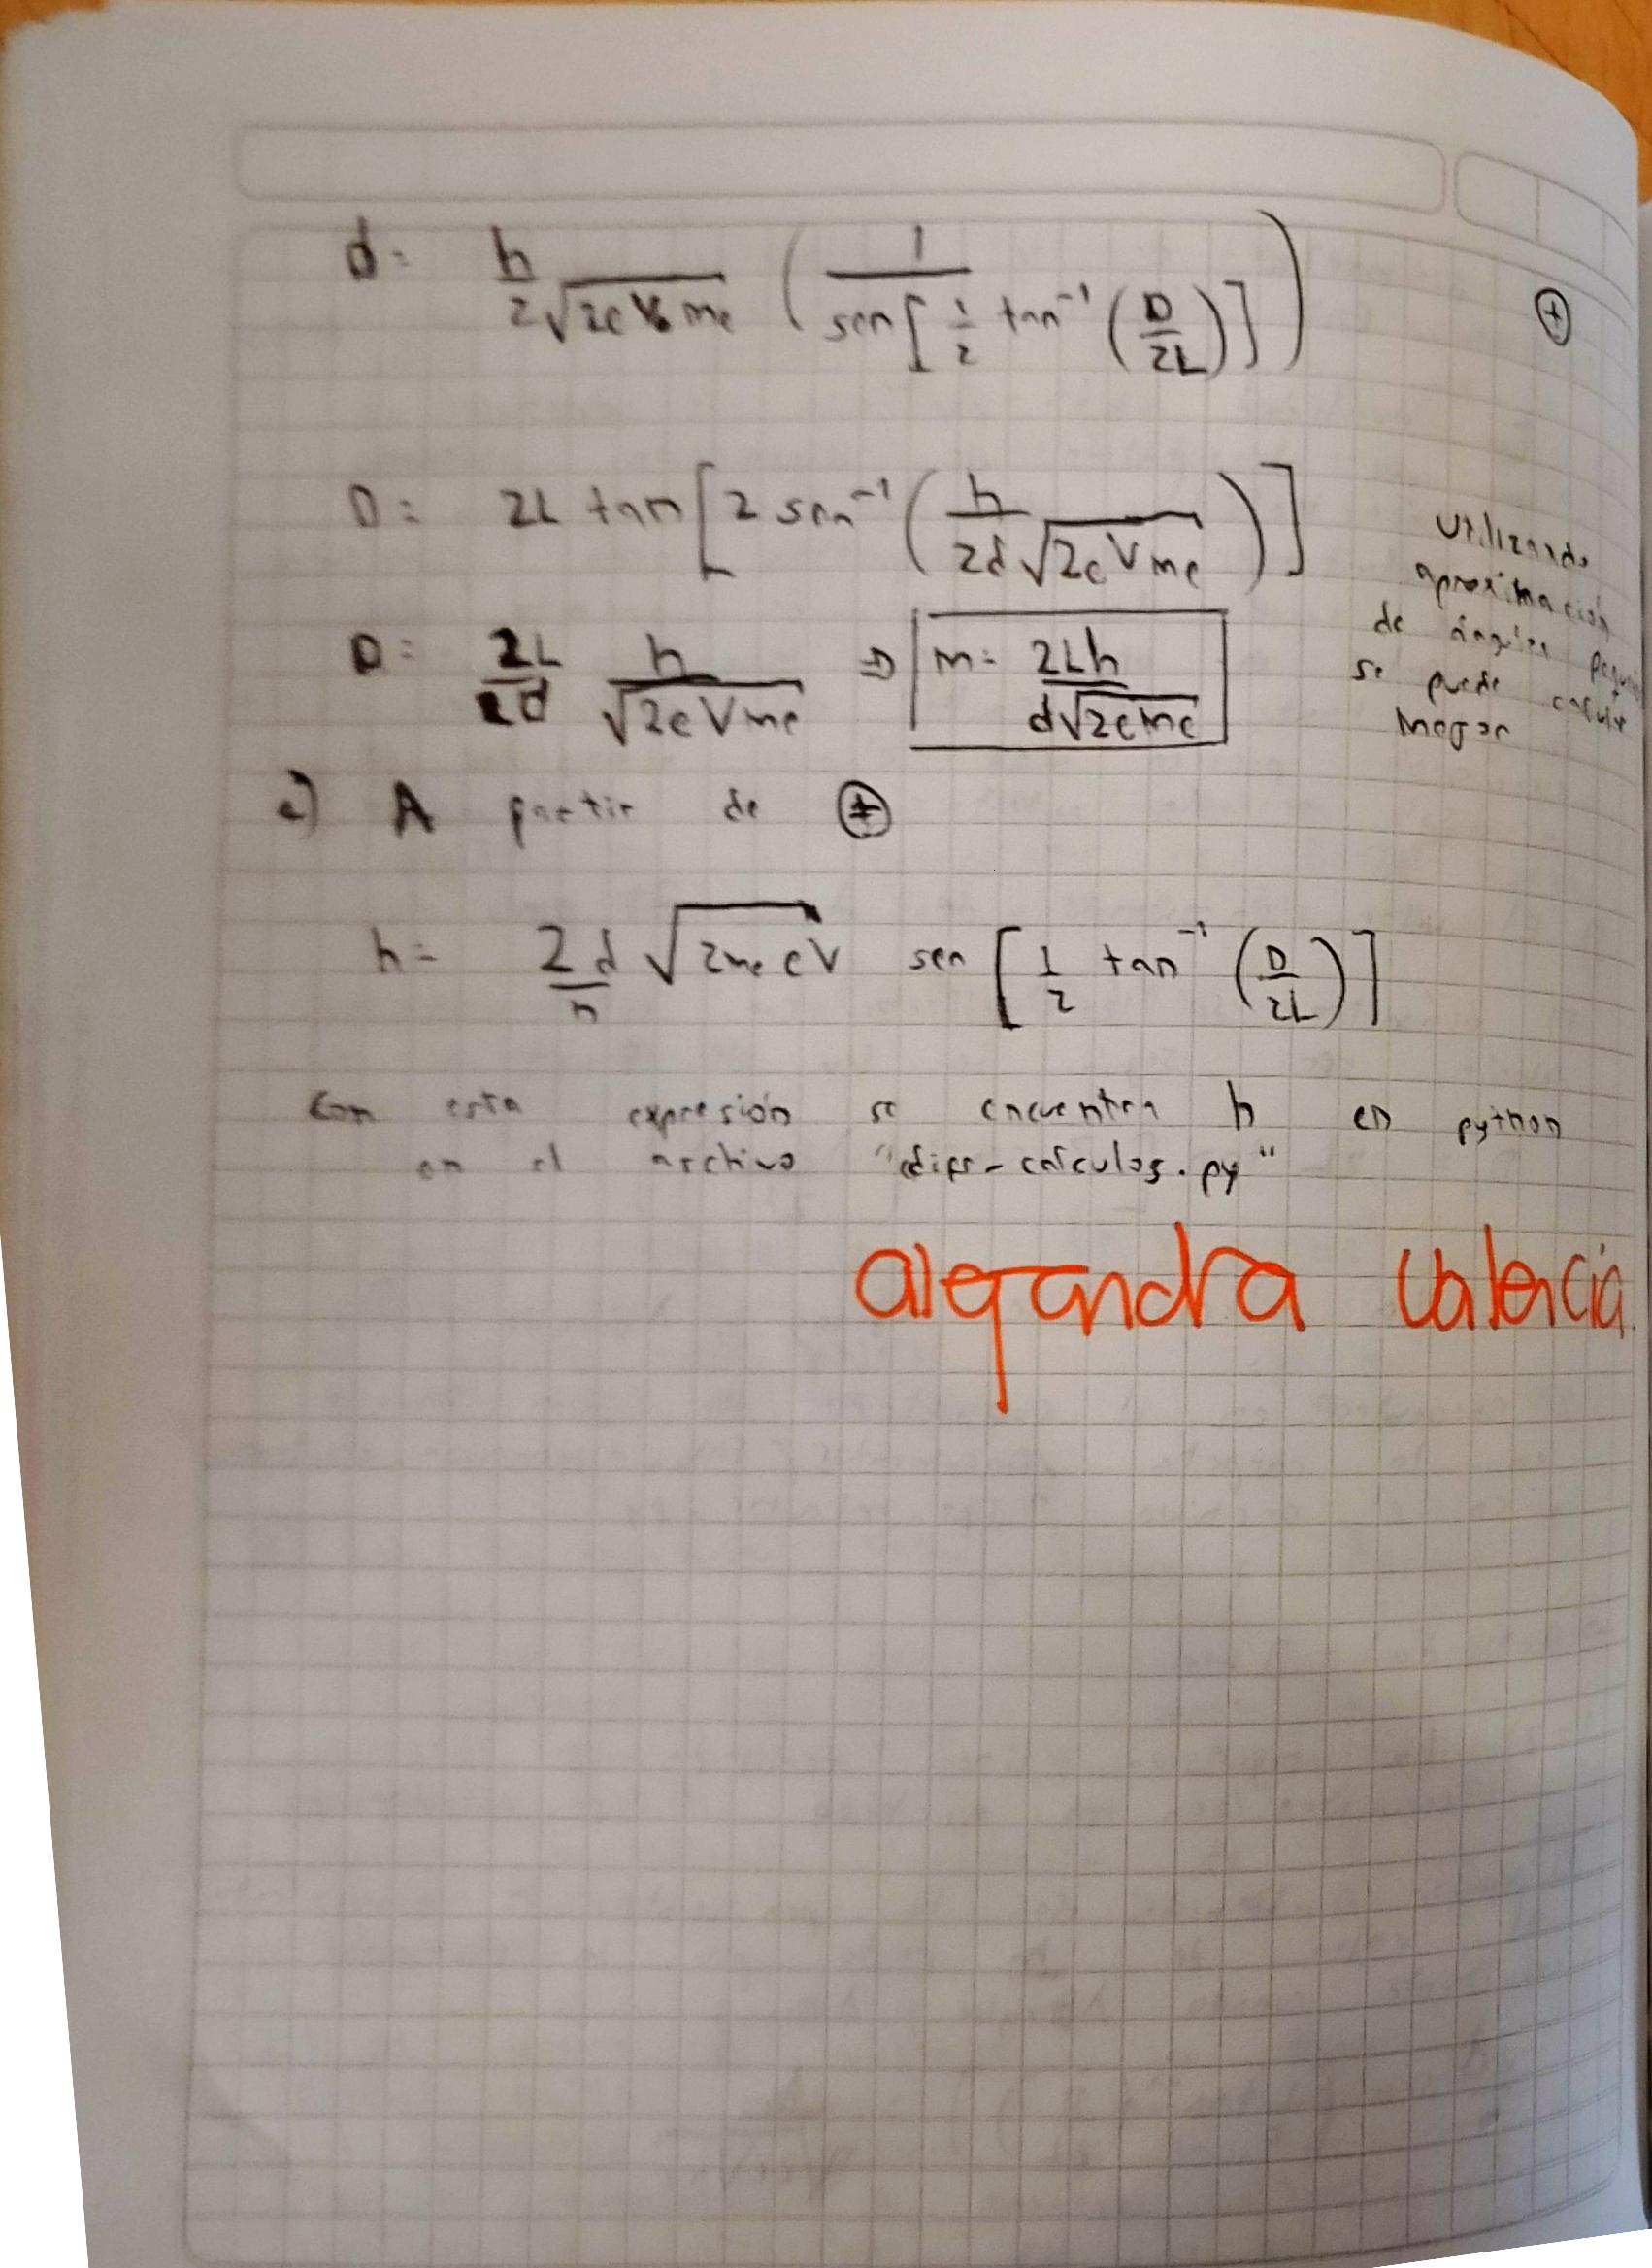 d = h / 2√(2eV₀me) ( 1 / sen[ 1/2 tan⁻¹ ( D/2L ) ] ) (+)
D = 2L tan [ 2 sen⁻¹ ( h / 2d√(2eVme) ) ]
Utilizando
aproximación
de ángulos
se puede
D = 2L/2d h/√(2eVme) ⇒ m = 2Lh / d√(2eme)
2) A partir de (+)
h = 2d/n √(2meeV) sen [ 1/2 tan⁻¹ ( D/2L ) ]
Con esta expresión se encuentra h en python
en el archivo "difr-calculos.py"
alejandra valencia.